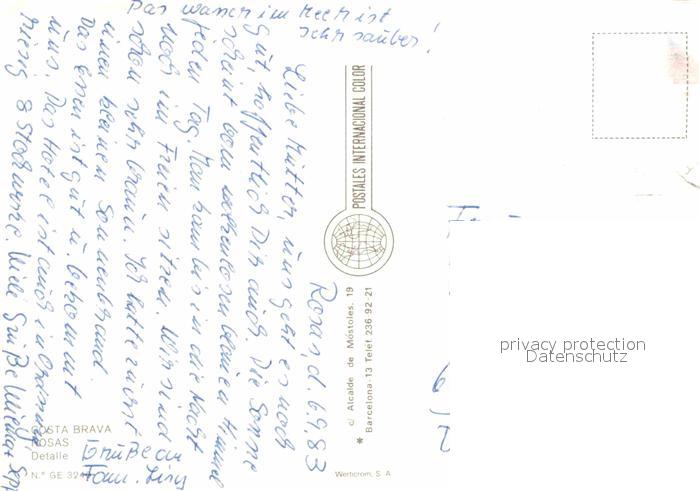 Das Wasser im Meer ist
sehr sauber!
Rosas, d. 6.9.83
Liebe Mutter, uns geht es noch
gut, hoffentlich Dir auch. Die Sonne
scheint vom wolkenlosen blauen Himmel
jeden Tag. Man kann bis in die Nacht
noch im Freien sitzen. Wir sind
schon sehr braun. Ich hatte zuerst
einen kleinen Sonnenbrand.
Das Essen ist gut u. bekommt
uns. Das Hotel ist auch in Ordnung
riesig 8 Stockwerke. Viele Grüße
Grüße an
Fam.
POSTALES INTERNACIONAL COLOR
c/ Alcalde de Móstoles, 19
* Barcelona-13 Teléf. 236 92 21
COSTA BRAVA
ROSAS
Detalle
N.º GE 32
Werticrom, S. A.
privacy protection
Datenschutz